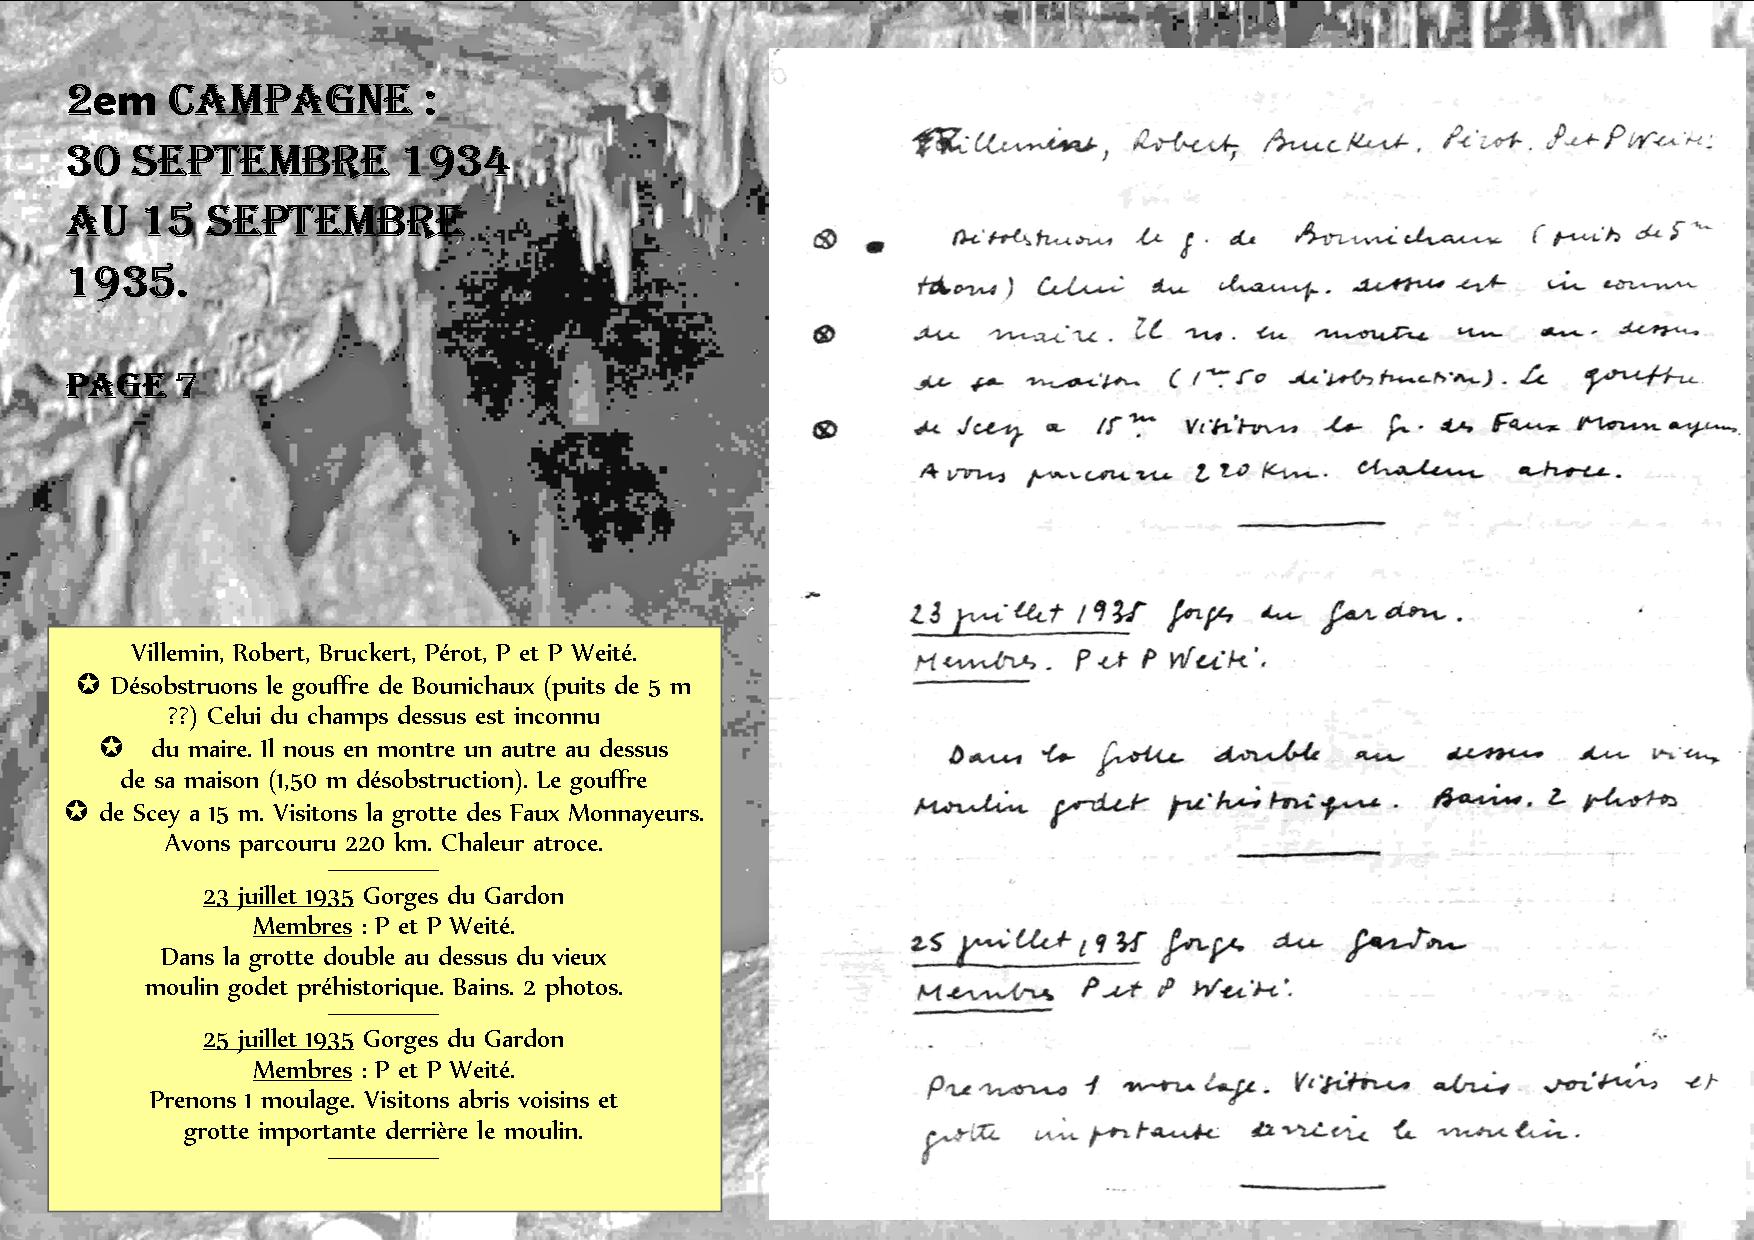 2em CAMPAGNE :
30 SEPTEMBRE 1934
AU 15 SEPTEMBRE
1935.
PAGE 7
Villemin, Robert, Bruckert, Pérot, P et P Weité.
✪ Désobstruons le gouffre de Bounichaux (puits de 5 m
??) Celui du champs dessus est inconnu
✪ du maire. Il nous en montre un autre au dessus
de sa maison (1,50 m désobstruction). Le gouffre
✪ de Scey a 15 m. Visitons la grotte des Faux Monnayeurs.
Avons parcouru 220 km. Chaleur atroce.
23 juillet 1935 Gorges du Gardon
Membres : P et P Weité.
Dans la grotte double au dessus du vieux
moulin godet préhistorique. Bains. 2 photos.
25 juillet 1935 Gorges du Gardon
Membres : P et P Weité.
Prenons 1 moulage. Visitons abris voisins et
grotte importante derrière le moulin.
Villemin, Robert, Bruckert, Pérot. P et P Weité.
⊗ Désobstruons le g. de Bounichaux (puits de 5 m
) Celui du champ. dessus est inconnu
⊗ du maire. Il ns. en montre un au. dessus
de sa maison (1m.50 désobstruction). Le gouffre
⊗ de Scey a 15 m. Visitons la gr. des Faux Monnayeurs.
Avons parcouru 220 Km. Chaleur atroce.
23 juillet 1935 Gorges du Gardon.
Membres. P et P Weité.
Dans la grotte double au dessus du vieux
Moulin godet préhistorique. Bains. 2 photos
25 juillet 1935 Gorges du Gardon
Membres P et P Weité.
Prenons 1 moulage. Visitons abris voisins et
grotte importante derrière le moulin.